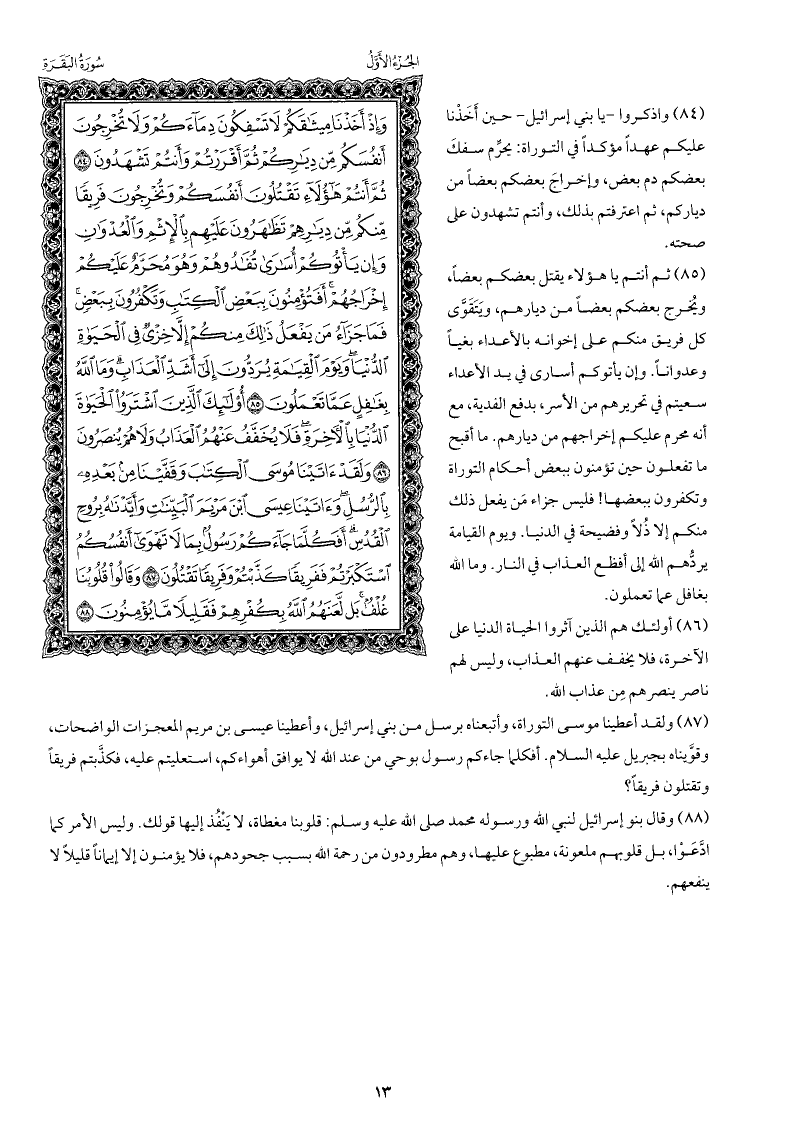 الجزء الأوّل
سورة البقرة
وَإِذْ أَخَذْنَا مِيثَٰقَكُمْ لَا تَسْفِكُونَ دِمَآءَكُمْ وَلَا تُخْرِجُونَ
أَنفُسَكُم مِّن دِيَٰرِكُمْ ثُمَّ أَقْرَرْتُمْ وَأَنتُمْ تَشْهَدُونَ ٨٤
ثُمَّ أَنتُمْ هَٰٓؤُلَآءِ تَقْتُلُونَ أَنفُسَكُمْ وَتُخْرِجُونَ فَرِيقًا
مِّنكُم مِّن دِيَٰرِهِمْ تَظَٰهَرُونَ عَلَيْهِم بِٱلْإِثْمِ وَٱلْعُدْوَٰنِ
وَإِن يَأْتُوكُمْ أُسَٰرَىٰ تُفَٰدُوهُمْ وَهُوَ مُحَرَّمٌ عَلَيْكُمْ
إِخْرَاجُهُمْ ۚ أَفَتُؤْمِنُونَ بِبَعْضِ ٱلْكِتَٰبِ وَتَكْفُرُونَ بِبَعْضٍ ۚ
فَمَا جَزَآءُ مَن يَفْعَلُ ذَٰلِكَ مِنكُمْ إِلَّا خِزْىٌ فِى ٱلْحَيَوٰةِ
ٱلدُّنْيَا ۖ وَيَوْمَ ٱلْقِيَٰمَةِ يُرَدُّونَ إِلَىٰٓ أَشَدِّ ٱلْعَذَابِ ۗ وَمَا ٱللَّهُ
بِغَٰفِلٍ عَمَّا تَعْمَلُونَ ٨٥ أُو۟لَٰٓئِكَ ٱلَّذِينَ ٱشْتَرَوُا۟ ٱلْحَيَوٰةَ
ٱلدُّنْيَا بِٱلْءَاخِرَةِ ۖ فَلَا يُخَفَّفُ عَنْهُمُ ٱلْعَذَابُ وَلَا هُمْ يُنصَرُونَ
٨٦ وَلَقَدْ ءَاتَيْنَا مُوسَى ٱلْكِتَٰبَ وَقَفَّيْنَا مِنۢ بَعْدِهِۦ
بِٱلرُّسُلِ ۖ وَءَاتَيْنَا عِيسَى ٱبْنَ مَرْيَمَ ٱلْبَيِّنَٰتِ وَأَيَّدْنَٰهُ بِرُوحِ
ٱلْقُدُسِ ۗ أَفَكُلَّمَا جَآءَكُمْ رَسُولٌۢ بِمَا لَا تَهْوَىٰٓ أَنفُسُكُمُ
ٱسْتَكْبَرْتُمْ فَفَرِيقًا كَذَّبْتُمْ وَفَرِيقًا تَقْتُلُونَ ٨٧ وَقَالُوا۟ قُلُوبُنَا
غُلْفٌۢ ۚ بَل لَّعَنَهُمُ ٱللَّهُ بِكُفْرِهِمْ فَقَلِيلًا مَّا يُؤْمِنُونَ ٨٨
(٨٤) واذكروا -يا بني إسرائيل- حين أَخَذْنا
عليكم عهداً مؤكداً في التوراة: يحرِّم سفكَ
بعضكم دم بعض، وإخراجَ بعضكم بعضاً من
دياركم، ثم اعترفتم بذلك، وأنتم تشهدون على
صحته.
(٨٥) ثم أنتم يا هؤلاء يقتل بعضكم بعضاً،
ويُخرج بعضكم بعضاً من ديارهم، ويَتَقَوَّى
كل فريق منكم على إخوانه بالأعداء بغياً
وعدواناً. وإن يأتوكم أسارى في يد الأعداء
سعيتم في تحريرهم من الأسر، بدفع الفدية، مع
أنه محرم عليكم إخراجهم من ديارهم. ما أقبح
ما تفعلون حين تؤمنون ببعض أحكام التوراة
وتكفرون ببعضها! فليس جزاء مَن يفعل ذلك
منكم إلا ذُلاً وفضيحة في الدنيا. ويوم القيامة
يردُّهم الله إلى أفظع العذاب في النار. وما الله
بغافل عما تعملون.
(٨٦) أولئك هم الذين آثروا الحياة الدنيا على
الآخرة، فلا يخفف عنهم العذاب، وليس لهم
ناصر ينصرهم مِن عذاب الله.
(٨٧) ولقد أعطينا موسى التوراة، وأتبعناه برسل من بني إسرائيل، وأعطينا عيسى بن مريم المعجزات الواضحات،
وقوَّيناه بجبريل عليه السلام. أفكلما جاءكم رسول بوحي من عند الله لا يوافق أهواءكم، استعليتم عليه، فكذَّبتم فريقاً
وتقتلون فريقاً؟
(٨٨) وقال بنو إسرائيل لنبي الله ورسوله محمد صلى الله عليه وسلم: قلوبنا مغطاة، لا يَنْفُذ إليها قولك. وليس الأمر كما
ادَّعَوْا، بل قلوبهم ملعونة، مطبوع عليها، وهم مطرودون من رحمة الله بسبب جحودهم، فلا يؤمنون إلا إيماناً قليلاً لا
ينفعهم.
١٣